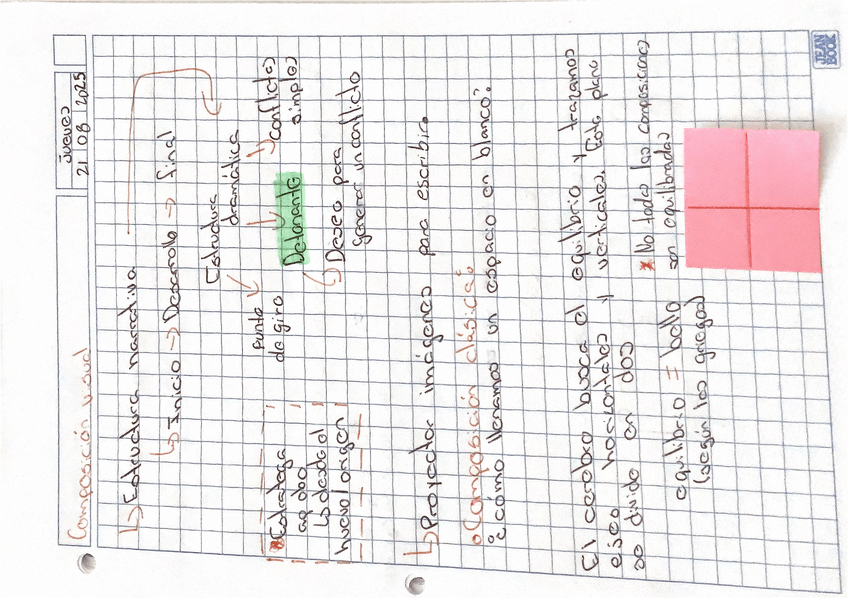 Composición visual
jueves
21 08 2025
↳ Estructura narrativa
↳ Inicio → Desarrollo → final
Estructura
dramática
Punto
de giro
Detonante
Conflictos
simples
↳ Deseo para
generar un conflicto
* Entrega
↳ desde el
huevo/origen
↳ Proyectar imágenes para escribir.
• Composición clásica:
¿cómo llenamos un espacio en blanco?
El cerebro busca el equilibrio y trazamos
ejes horizontales y verticales. Este plano
se divide en dos
* No todas las composiciones
son equilibradas
equilibrio = bello
(según los griegos)
JEAN
BOOK